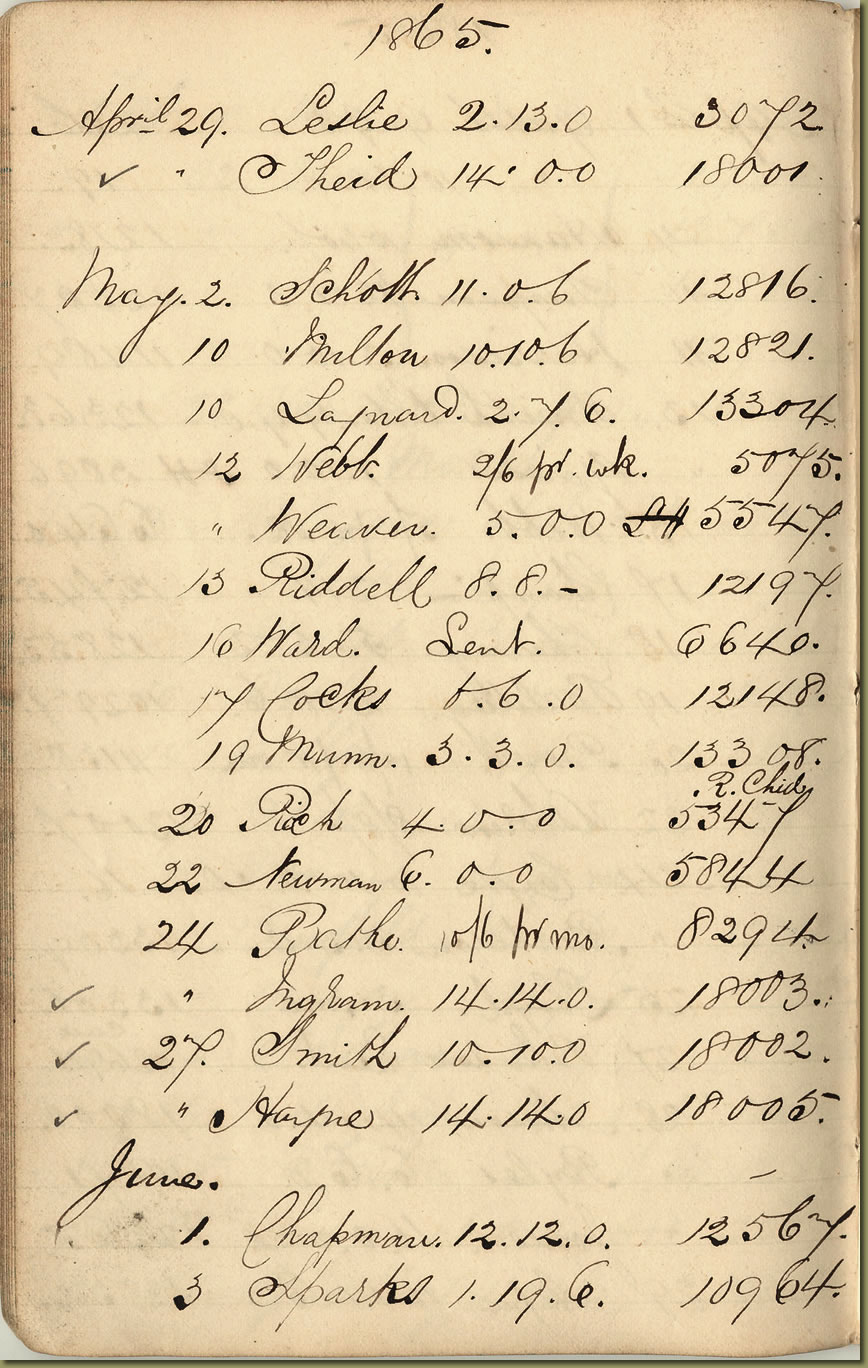 1865.
April 29. Leslie 2.13.0 3072.
✓ " Theid 14.0.0 18001.
May. 2. Schott 11.0.6 12816.
10 Milton 10.10.6 12821.
10 Laynard. 2.7.6. 13304.
12 Webb. 2/6 pr. wk. 5075.
" Weaver. 5.0.0 5547.
13 Riddell 8.8.- 12197.
16 Ward. Lent. 6640.
17 Cocks 6.6.0 12148.
19 Munn. 3.3.0. 13308.
R. Chid
20 Rich 4.0.0 5347
22 Newman 6.0.0 5844
24 Bathe. 10/6 pr mo. 8294.
✓ " Ingham. 14.14.0. 18003.
✓ 27. Smith 10.10.0 18002.
✓ " Hayne 14.14.0 18005.
June.
1. Chapman. 12.12.0. 12567.
3 Sparks 1.19.6. 10964.